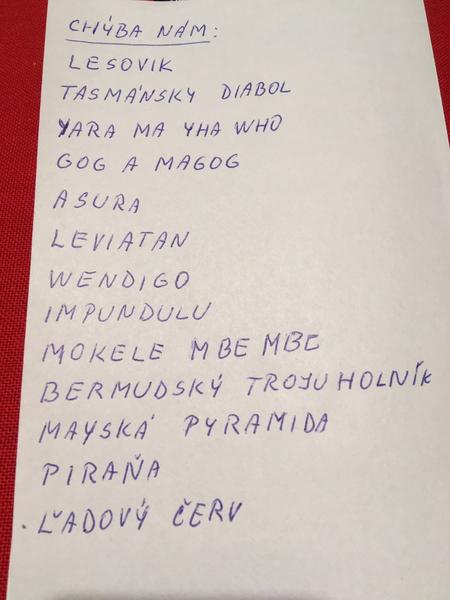 CHÝBA NÁM:
LESOVIK
TASMÁNSKY DIABOL
YARA MA YHA WHO
GOG A MAGOG
ASURA
LEVIATAN
WENDIGO
IMPUNDULU
MOKELE MBE MBE
BERMUDSKÝ TROJUHOLNÍK
MAYSKÁ PYRAMIDA
PIRAŇA
ĽADOVÝ ČERV